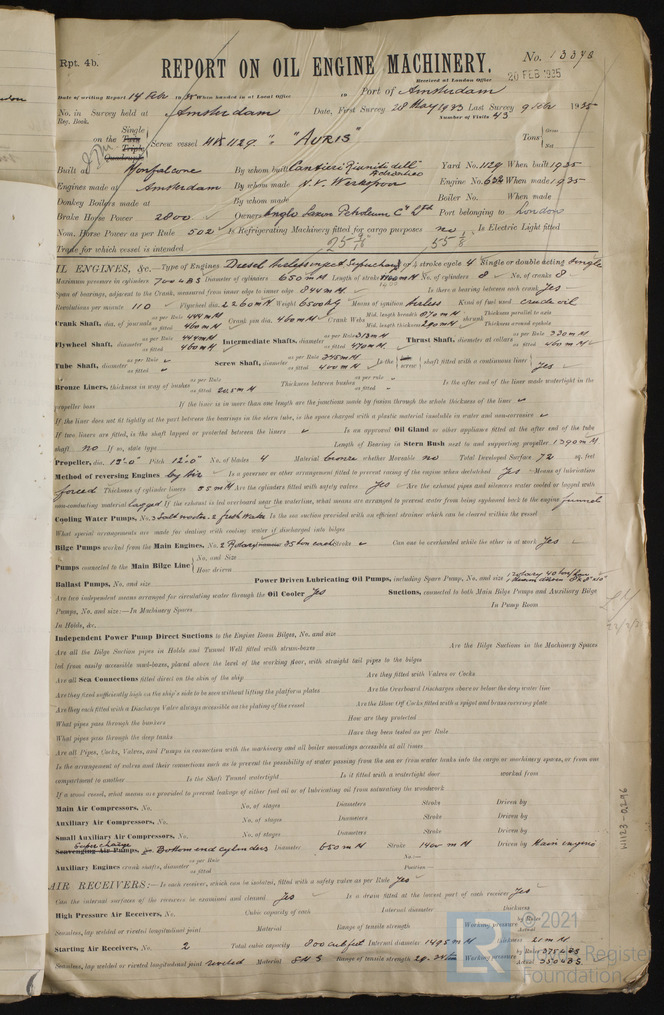 Rpt. 4b.
REPORT ON OIL ENGINE MACHINERY.
No. 13378
Received at London Office 20 FEB 1935
Date of writing Report 14 Feb 1935 When handed in at Local Office 19 Port of Amsterdam
No. in Reg. Book. Survey held at Amsterdam Date, First Survey 28 May 1933 Last Survey 9 Feb 1935
Number of Visits 43
on the Single Twin Triple Quadruple Screw vessel No 1129 "AURIS" Tons Gross Net
Built at Monfalcone By whom built Cantieri Riuniti dell' Adriatico Yard No. 1129 When built 1935
Engines made at Amsterdam By whom made N.V. Werkspoor Engine No. 632 When made 1935
Donkey Boilers made at By whom made Boiler No. When made
Brake Horse Power 2800 Owners Anglo Saxon Petroleum Co Ltd Port belonging to London
Nom. Horse Power as per Rule 502 Is Refrigerating Machinery fitted for cargo purposes no Is Electric Light fitted
Trade for which vessel is intended
OIL ENGINES, &c.—Type of Engines Diesel 2 or 4 stroke cycle 4 Single or double acting Single
Maximum pressure in cylinders 700 LBS Diameter of cylinders 650 mM Length of stroke 1400 mM No. of cylinders 8 No. of cranks 8
Span of bearings, adjacent to the Crank, measured from inner edge to inner edge 844 mM Is there a bearing between each crank yes
Revolutions per minute 110 Flywheel dia. 2260 mM Weight 6500 kg Means of ignition Airless Kind of fuel used crude oil
Crank Shaft, dia. of journals as per Rule 444 mM as fitted 460 mM Crank pin dia. 460 mM Crank Webs Mid. length breadth 870 mM Mid. length thickness 290 mM shrunk Thickness parallel to axis Thickness around eyehole
Flywheel Shaft, diameter as per Rule 444 mM as fitted 460 mM Intermediate Shafts, diameter as per Rule 313 mM as fitted 470 mM Thrust Shaft, diameter at collars as per Rule 330 mM as fitted 460 mM
Tube Shaft, diameter as per Rule as fitted Screw Shaft, diameter as per Rule 345 mM as fitted 400 mM Is the screw shaft fitted with a continuous liner yes
Bronze Liners, thickness in way of bushes as per Rule as fitted 20.5 mM Thickness between bushes as per Rule as fitted Is the after end of the liner made watertight in the
propeller boss If the liner is in more than one length are the junctions made by fusion through the whole thickness of the liner
If the liner does not fit tightly at the part between the bearings in the stern tube, is the space charged with a plastic material insoluble in water and non-corrosive
If two liners are fitted, is the shaft lapped or protected between the liners Is an approved Oil Gland or other appliance fitted at the after end of the tube
shaft no If so, state type Length of Bearing in Stern Bush next to and supporting propeller 1390 mM
Propeller, dia. Pitch 12'-0" No. of blades 4 Material bronze whether Moveable no Total Developed Surface 72 sq. feet
Method of reversing Engines by air Is a governor or other arrangement fitted to prevent racing of the engine when declutched yes Means of lubrication
forced Thickness of cylinder liners 55 mM Are the cylinders fitted with safety valves yes Are the exhaust pipes and silencers water cooled or lagged with
non-conducting material lagged If the exhaust is led overboard near the waterline, what means are arranged to prevent water from being syphoned back to the engine funnel
Cooling Water Pumps, No. 2 salt water, 2 fresh water Is the sea suction provided with an efficient strainer which can be cleared within the vessel
What special arrangements are made for dealing with cooling water if discharged into bilges
Bilge Pumps worked from the Main Engines, No. 2 Rotary Diameter 35 ton each Stroke Can one be overhauled while the other is at work yes
Pumps connected to the Main Bilge Line No. and Size How driven
Ballast Pumps, No. and size Power Driven Lubricating Oil Pumps, including Spare Pump, No. and size
Are two independent means arranged for circulating water through the Oil Cooler yes Suctions, connected to both Main Bilge Pumps and Auxiliary Bilge
Pumps, No. and size:—In Machinery Spaces In Pump Room
In Holds, &c.
Independent Power Pump Direct Suctions to the Engine Room Bilges, No. and size
Are all the Bilge Suction pipes in Holds and Tunnel Well fitted with strum-boxes Are the Bilge Suctions in the Machinery Spaces
led from easily accessible mud-boxes, placed above the level of the working floor, with straight tail pipes to the bilges
Are all Sea Connections fitted direct on the skin of the ship Are they fitted with Valves or Cocks
Are they fixed sufficiently high on the ship's side to be seen without lifting the platform plates Are the Overboard Discharges above or below the deep water line
Are they each fitted with a Discharge Valve always accessible on the plating of the vessel Are the Blow Off Cocks fitted with a spigot and brass covering plate
What pipes pass through the bunkers How are they protected
What pipes pass through the deep tanks Have they been tested as per Rule
Are all Pipes, Cocks, Valves, and Pumps in connection with the machinery and all boiler mountings accessible at all times
Is the arrangement of valves and their connections such as to prevent the possibility of water passing from the sea or from water tanks into the cargo or machinery spaces, or from one
compartment to another Is the Shaft Tunnel watertight Is it fitted with a watertight door worked from
If a wood vessel, what means are provided to prevent leakage of either fuel oil or of lubricating oil from saturating the woodwork
Main Air Compressors, No. No. of stages Diameters Stroke Driven by
Auxiliary Air Compressors, No. No. of stages Diameters Stroke Driven by
Small Auxiliary Air Compressors, No. No. of stages Diameters Stroke Driven by
Supercharge
Scavenging Air Pumps, No. Bottom end cylinders Diameter 650 mM Stroke 1400 mM Driven by Main engine
Auxiliary Engines crank shafts, diameter as per Rule as fitted No. Position
AIR RECEIVERS:—Is each receiver, which can be isolated, fitted with a safety valve as per Rule yes
Can the internal surfaces of the receivers be examined and cleaned yes Is a drain fitted at the lowest part of each receiver yes
High Pressure Air Receivers, No. Cubic capacity of each Internal diameter Thickness
Seamless, lap welded or riveted longitudinal joint Material Range of tensile strength Working pressure
Starting Air Receivers, No. 2 Total cubic capacity 800 cub feet Internal diameter 1495 mM thickness 21 mM
Seamless, lap welded or riveted longitudinal joint riveted Material S M S Range of tensile strength Working pressure by Rules 375 LBS Actual 350 LBS
W1123-0296
LR
© 2021
Lloyd's Register
Foundation